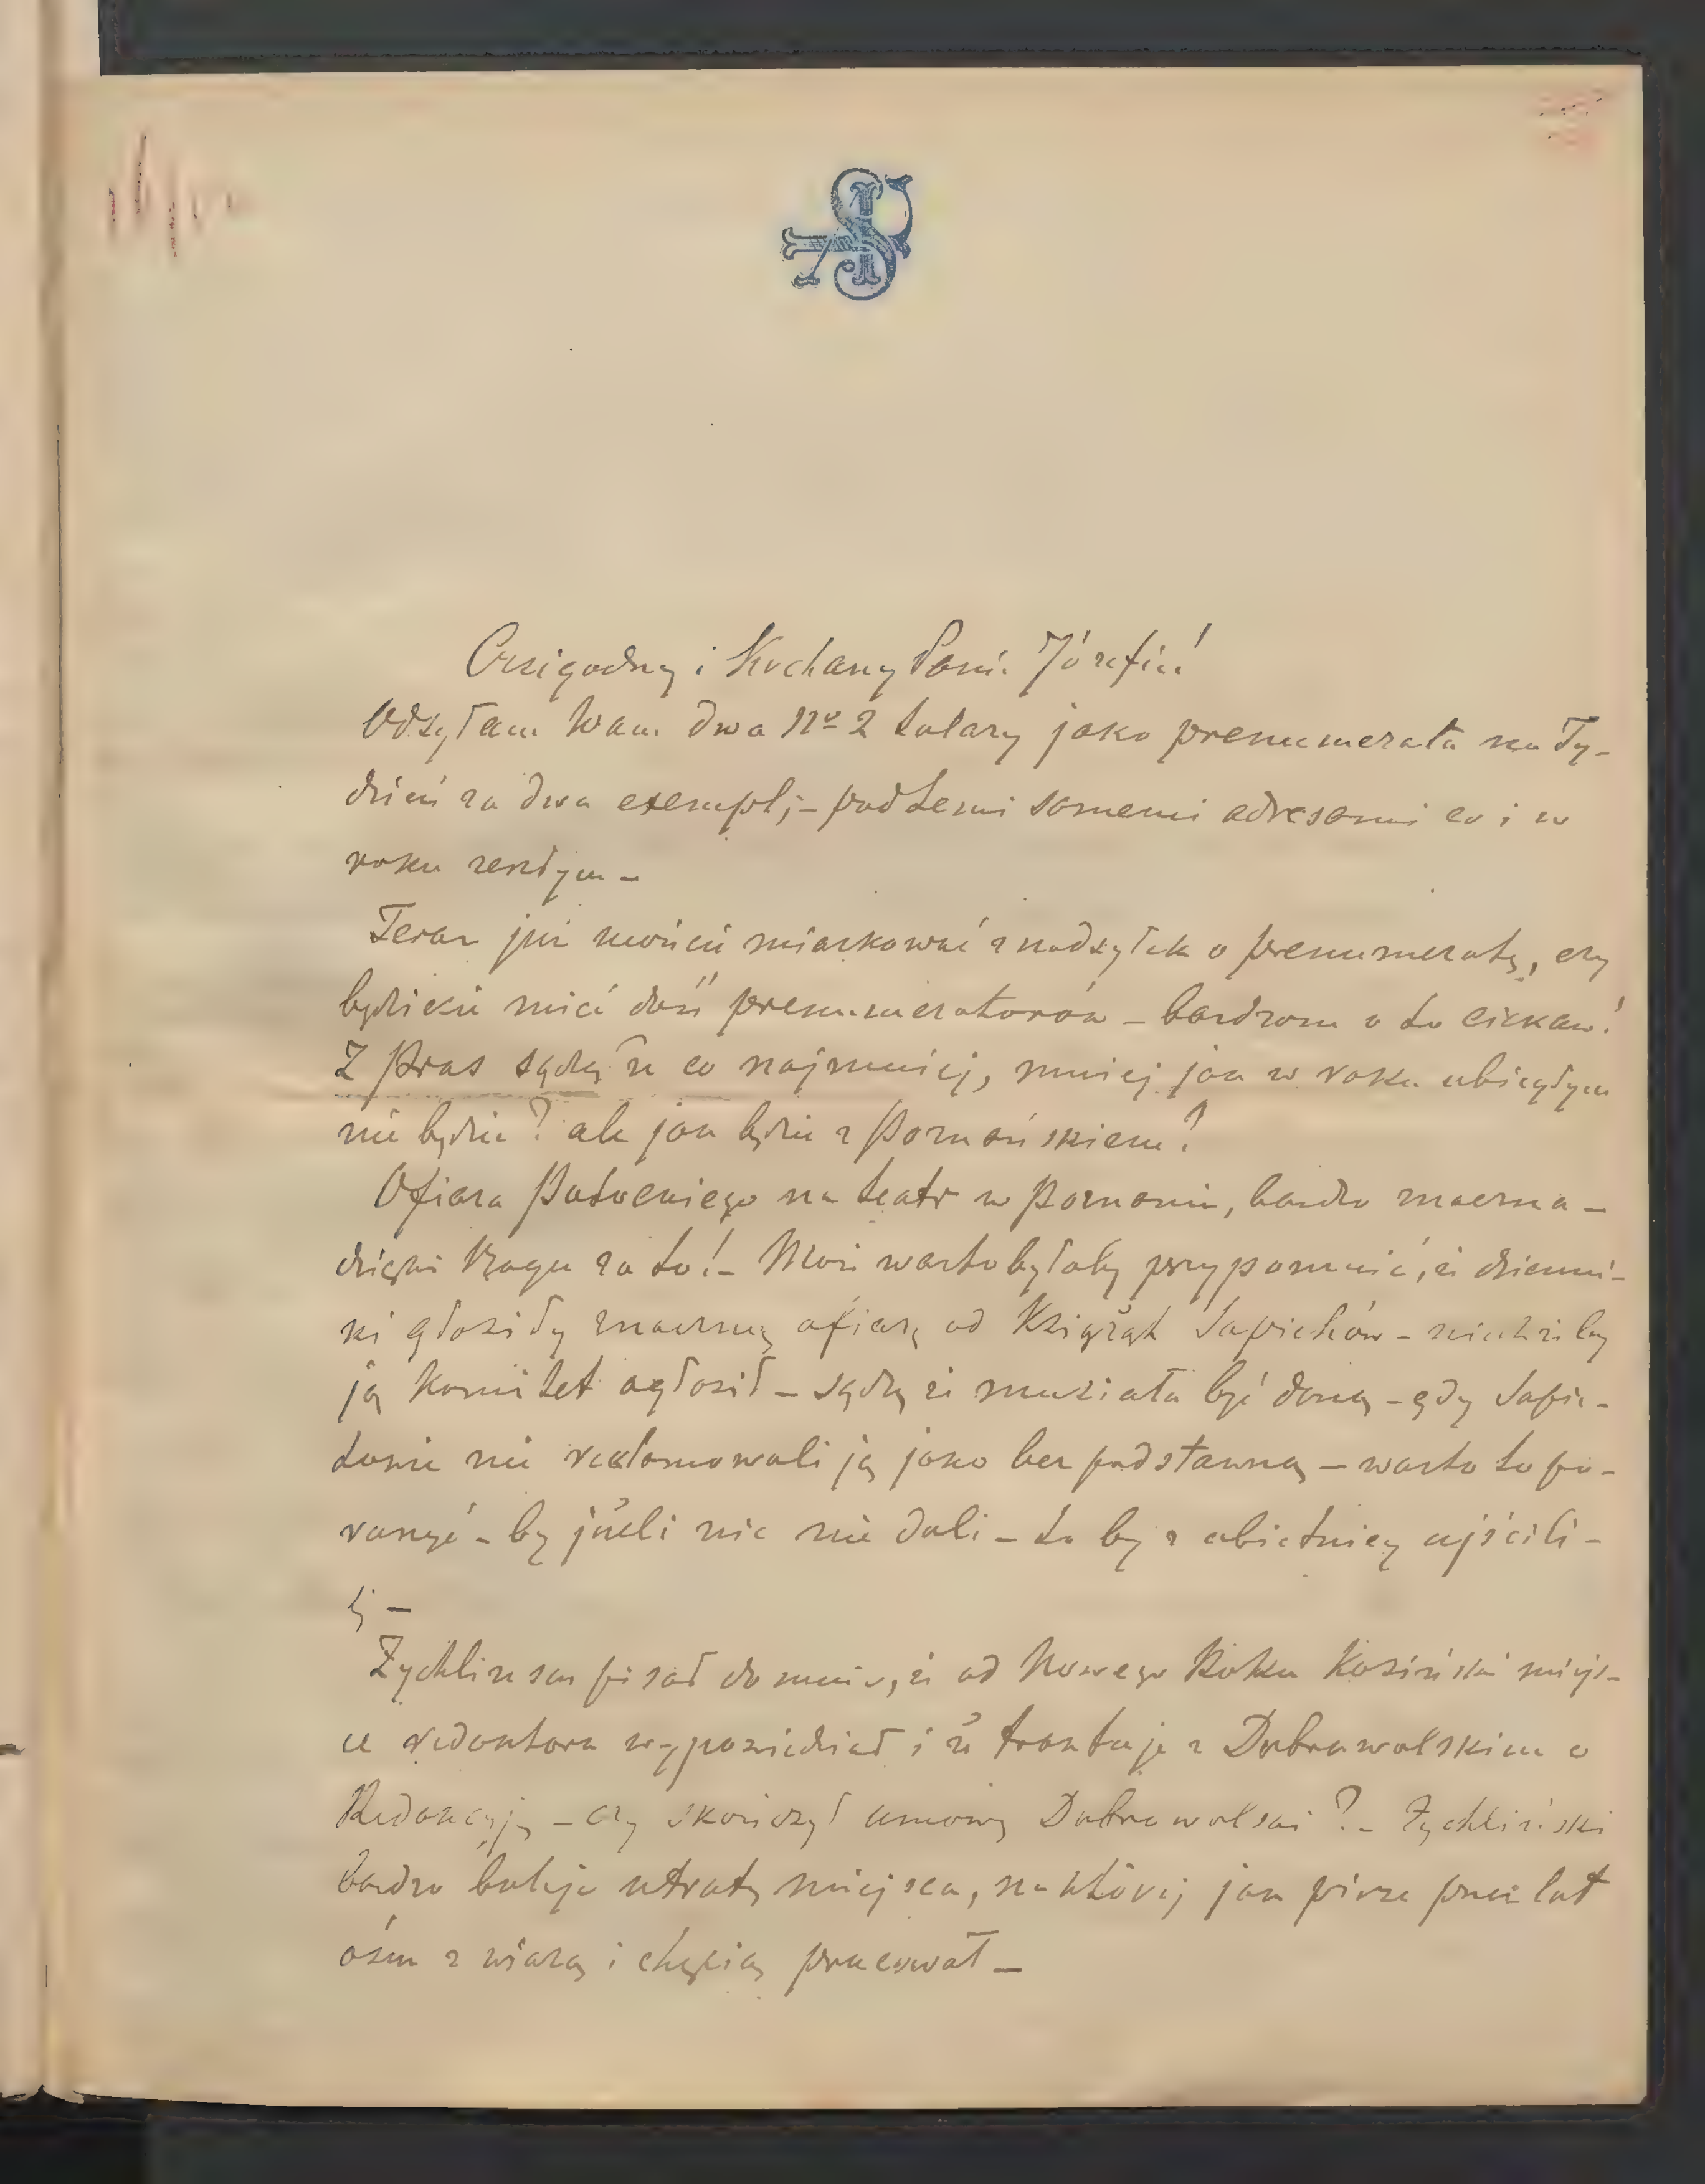 Czcigodny i Kochany Panie Józefie!
Odsyłam Wam dwa No 2 talary jako prenumerata na Ty-
dzień za dwa exempl; – pod temi samemi adresami co i w
roku zeszłym –
Teraz już możecie miarkować z nadsyłek o prenumeratę, czy
będziecie mieć dość prenumeratorów – bardzom o to ciekaw!
Z Prus sądzę że co najmniej, mniej jak w roku ubiegłym
nie będzie? ale jak będzie z Poznańskiem?
Ofiara Potockiego na teatr w Poznaniu, bardzo znaczna –
dzięki Bogu za to! – Może warto byłoby przypomnieć, że dzienni-
ki głosiły znaczną ofiarę od Książąt Sapiehów – niechże by
ją komitet ogłosił – sądzę że musiała być daną – gdy Sapie-
howie nie reklamowali ją jako bezpodstawną – warto to po-
ruszyć – by jeżeli nic nie dali – to by z obietnicy uiścili –
Żychliński pisał do mnie, że od Nowego Roku Kosiński miejs-
ce redaktora wypowiedział i że traktuje z Dobrowolskim o
Redakcyję – czy skończył umowę Dobrowolski? – Żychliński
bardzo boleje utratę miejsca, na której jak pisze przez lat
ośm z wiarą i chęcią pracował –